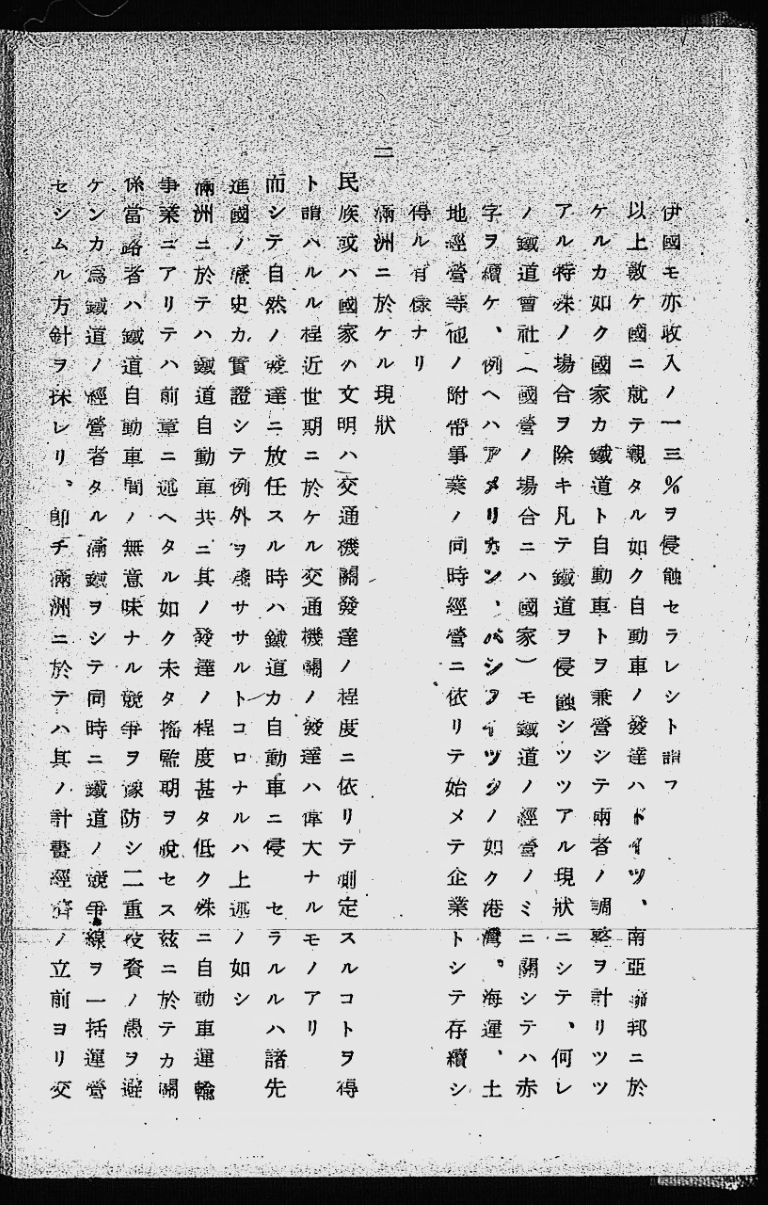 伊國モ亦收入ノ一三％ヲ侵蝕セラレシト謂フ
以上數ケ國ニ就テ觀タル如ク自動車ノ發達ハドイツ、南亞聯邦ニ於
ケルカ如ク國家カ鐵道ト自動車トヲ兼營シテ兩者ノ調整ヲ計リツツ
アル特殊ノ場合ヲ除キ凡テ鐵道ヲ侵蝕シツツアル現狀ニシテ、何レ
ノ鐵道會社（國營ノ場合ニハ國家）モ鐵道ノ經營ノミニ關シテハ赤
字ヲ續ケ、例ヘハアメリカン、パシフイツクノ如ク港灣、海運、土
地經營等他ノ附帶事業ノ同時經營ニ依リテ始メテ企業トシテ存續シ
得ル有樣ナリ
二　滿洲ニ於ケル現狀
民族或ハ國家ノ文明ハ交通機關發達ノ程度ニ依リテ測定スルコトヲ得
ト謂ハルル程近世期ニ於ケル交通機關ノ發達ハ偉大ナルモノアリ
而シテ自然ノ發達ニ放任スル時ハ鐵道カ自動車ニ侵セラルルハ諸先
進國ノ歷史カ實證シテ例外ヲ殘ササルトコロナルハ上述ノ如シ
滿洲ニ於テハ鐵道自動車共ニ其ノ發達ノ程度甚タ低ク殊ニ自動車運輸
事業ニアリテハ前章ニ述ヘタル如ク未タ搖監期ヲ脫セス玆ニ於テカ關
係當路者ハ鐵道自動車間ノ無意味ナル競爭ヲ豫防シ二重投資ノ愚ヲ避
ケンカ爲鐵道ノ經營者タル滿鐵ヲシテ同時ニ鐵道ノ競爭線ヲ一括運營
セシムル方針ヲ採レリ、卽チ滿洲ニ於テハ其ノ計畫經濟ノ立前ヨリ交